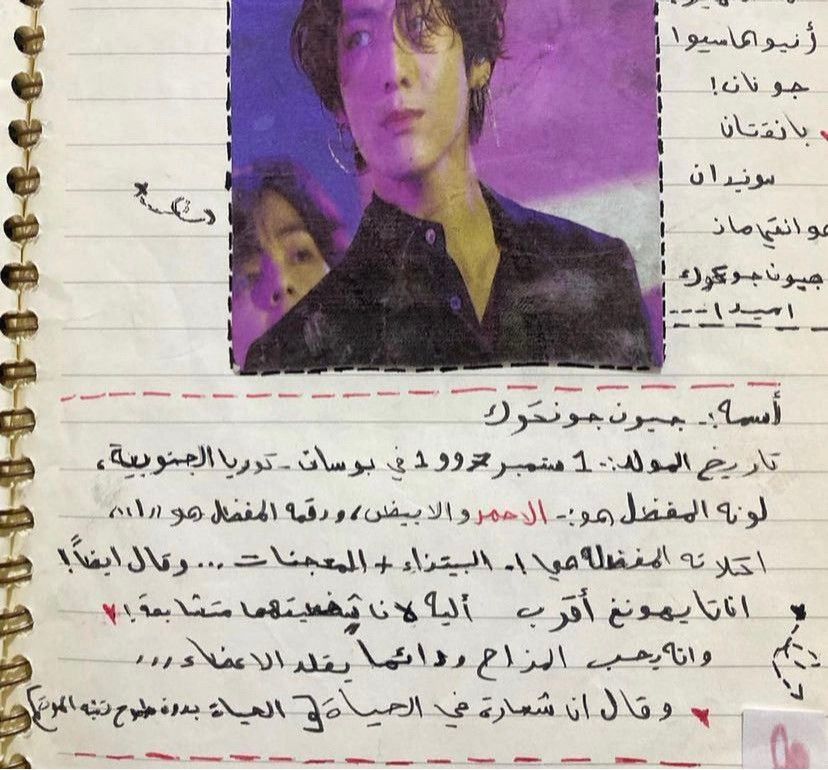 أنيوهاسيوا
جونان!
بانقتان
سونيدان
جيون جونكوك
اميدا...
أسمة:. جيون جونكوك
تاريخ المولد:. 1 سبتمبر 1997 في بوسان - كوريا الجنوبية،
لونه المفضل هو:- الاحمر والابيض، ورقمة المفضل هو "1"،،
اكلاته المفضلة هيا !. البيتزاء + المعجنات ... وقال ايضاً!
انا تايهونغ أقرب ألية لانا شخصيتهما متشابهة!.
وانه يحب المزاح ودائما يقلد الاعضاء،،،
وقال ان شعارة في الحياة [ الحياة بدون طموح تشبه الموت ]